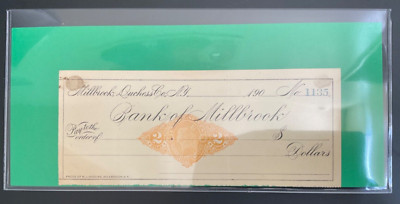 Millbrook, Duchess Co., N.Y. 190 No 1135
Bank of Millbrook
Pay to the order of $
Dollars